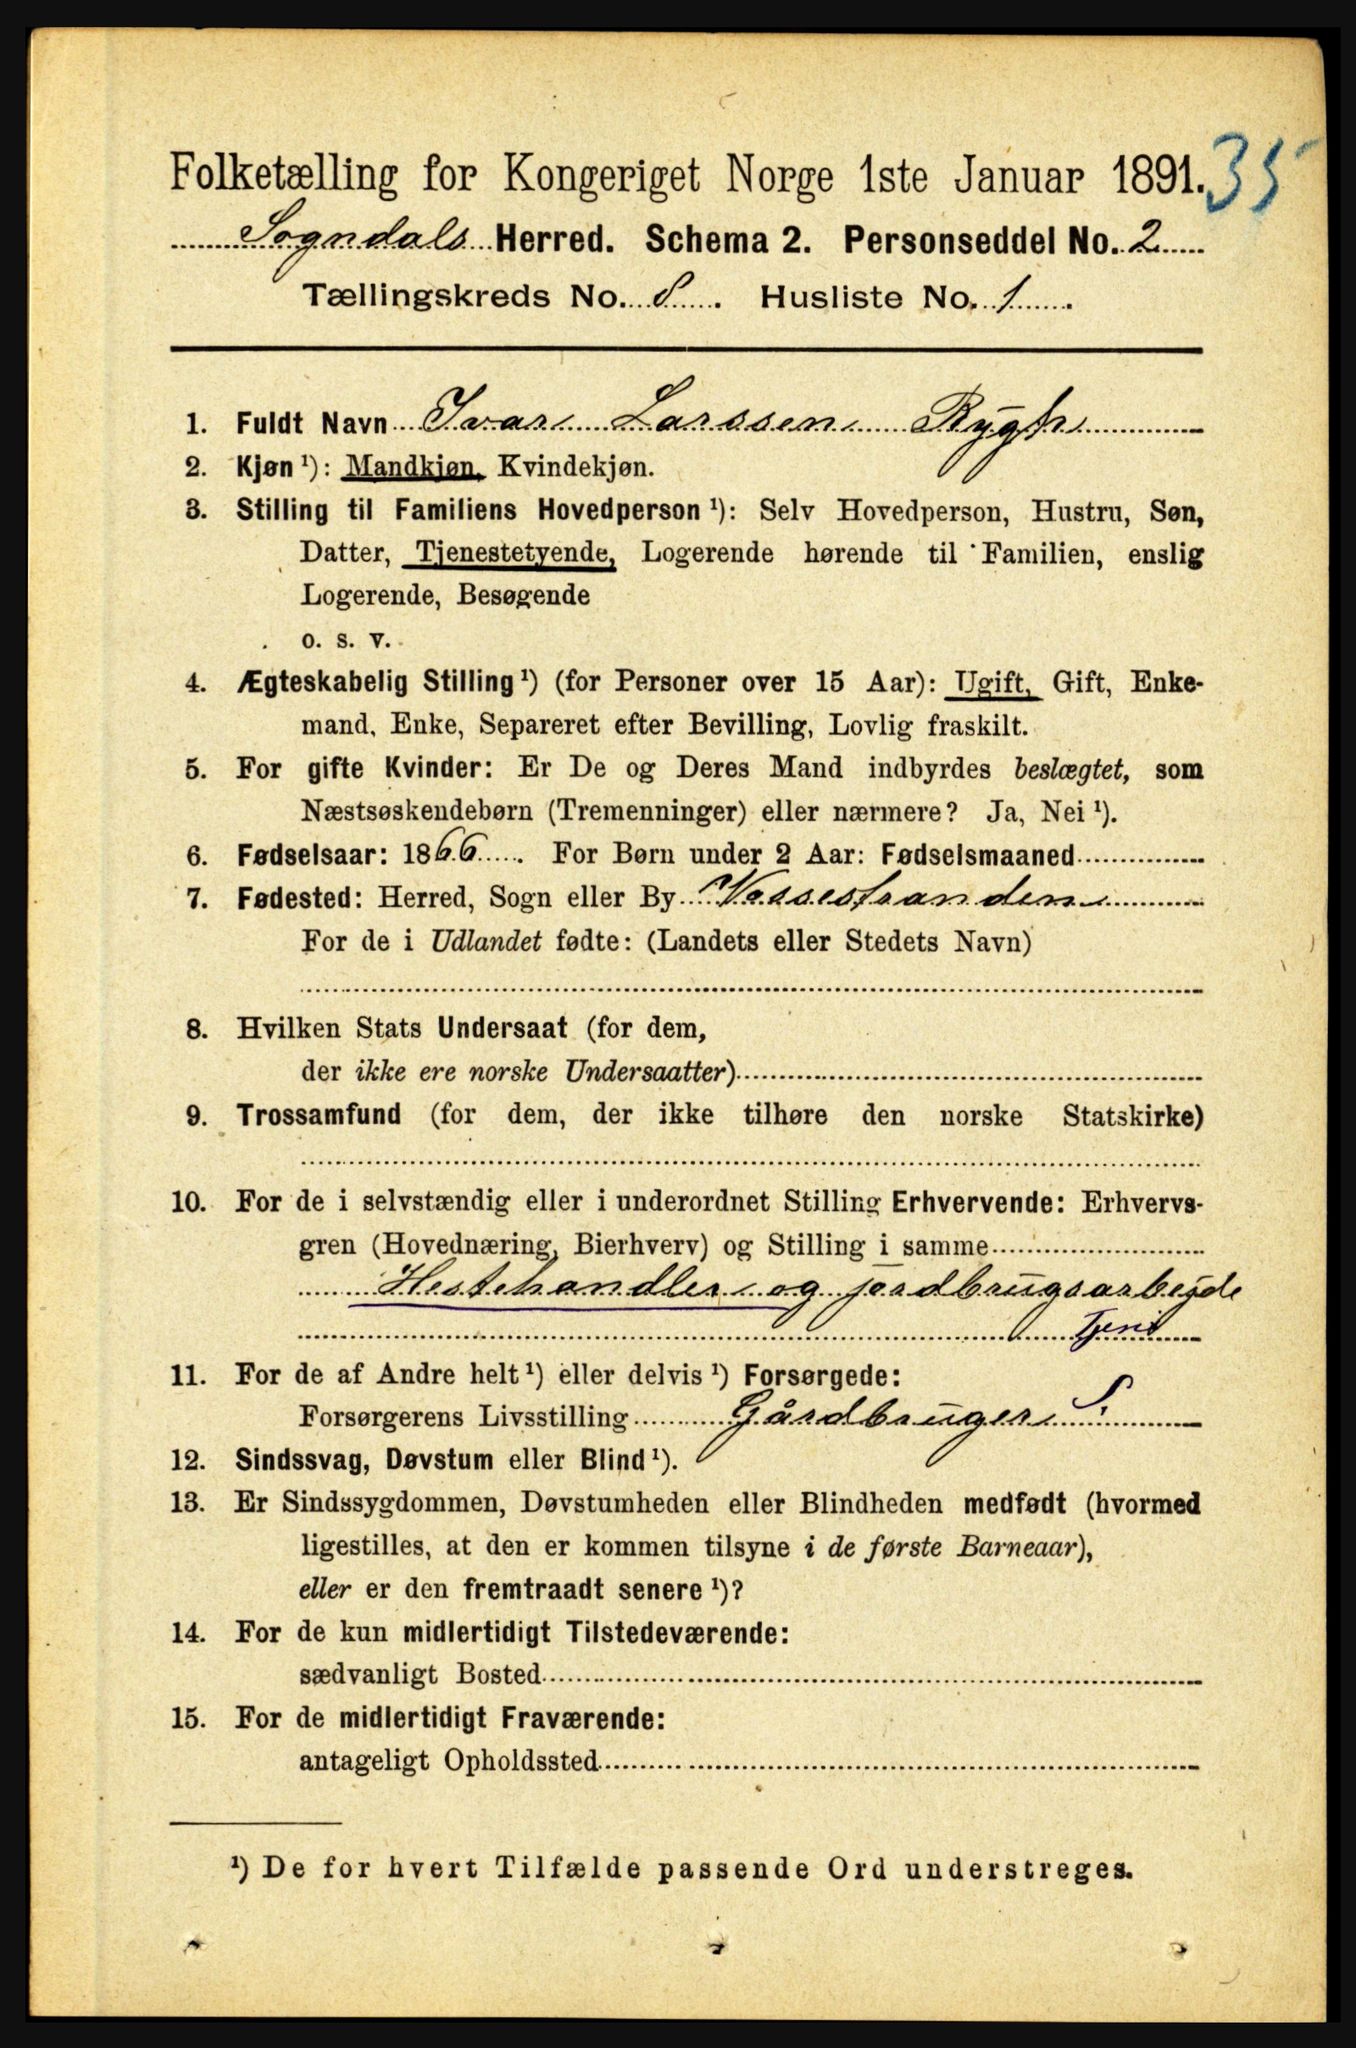 Folketælling for Kongeriget Norge 1ste Januar 1891. 35
Sogndals Herred. Schema 2. Personseddel No. 2
Tællingskreds No. 8. Husliste No. 1.
1. Fuldt Navn Ivar Larssen Rygh
2. Kjøn ¹): Mandkjøn, Kvindekjøn.
3. Stilling til Familiens Hovedperson ¹): Selv Hovedperson, Hustru, Søn,
Datter, Tjenestetyende, Logerende hørende til Familien, enslig
Logerende, Besøgende
o. s. v.
4. Ægteskabelig Stilling ¹) (for Personer over 15 Aar): Ugift, Gift, Enke-
mand, Enke, Separeret efter Bevilling, Lovlig fraskilt.
5. For gifte Kvinder: Er De og Deres Mand indbyrdes beslægtet, som
Næstsøskendebørn (Tremenninger) eller nærmere? Ja, Nei ¹).
6. Fødselsaar: 1866. For Børn under 2 Aar: Fødselsmaaned
7. Fødested: Herred, Sogn eller By Vossestranden
For de i Udlandet fødte: (Landets eller Stedets Navn)
8. Hvilken Stats Undersaat (for dem,
der ikke ere norske Undersaatter)
9. Trossamfund (for dem, der ikke tilhøre den norske Statskirke)
10. For de i selvstændig eller i underordnet Stilling Erhvervende: Erhvervs-
gren (Hovednæring, Bierhverv) og Stilling i samme
Hestehandler og jordbrugsarbejde
Tjens
11. For de af Andre helt ¹) eller delvis ¹) Forsørgede:
Forsørgerens Livsstilling Gårdbruger S.
12. Sindssvag, Døvstum eller Blind ¹).
13. Er Sindssygdommen, Døvstumheden eller Blindheden medfødt (hvormed
ligestilles, at den er kommen tilsyne i de første Barneaar),
eller er den fremtraadt senere ¹)?
14. For de kun midlertidigt Tilstedeværende:
sædvanligt Bosted
15. For de midlertidigt Fraværende:
antageligt Opholdssted
¹) De for hvert Tilfælde passende Ord understreges.